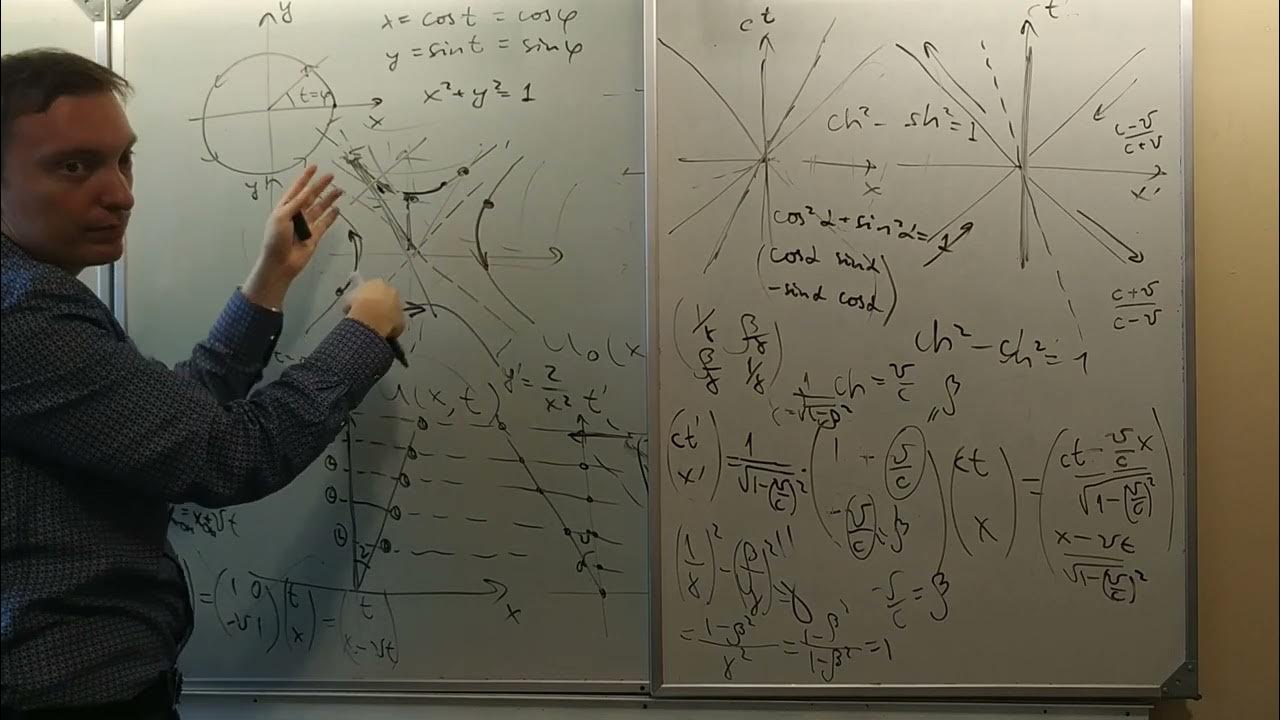 y
x = cos t = cos φ
y = sin t = sin φ
t=φ
x² + y² = 1
x
y
u₀(x
y' = 2/x² t'
u(x, t)
x
= (1 0 / -v 1) (t / x) = (t / x - vt)
ct
ct'
ch² - sh² = 1
(c-v)/(c+v)
x
x'
cos²α + sin²α = 1
(cosα sinα / -sinα cosα)
(c+v)/(c-v)
(1/γ β/γ / β/γ 1/γ)
ch² - sh² = 1
ch = v/c
β
1/√(1-β²)
(ct' / x') = 1/√(1-(v/c)²) (1 - v/c / -v/c 1) (ct / x) = ((ct - v/c x)/√(1-(v/c)²) / (x - vt)/√(1-(v/c)²))
β
(1/γ)² - (β/γ)² =
v/c = β
= (1-β²)/γ² = (1-β²)/(1-β²) = 1